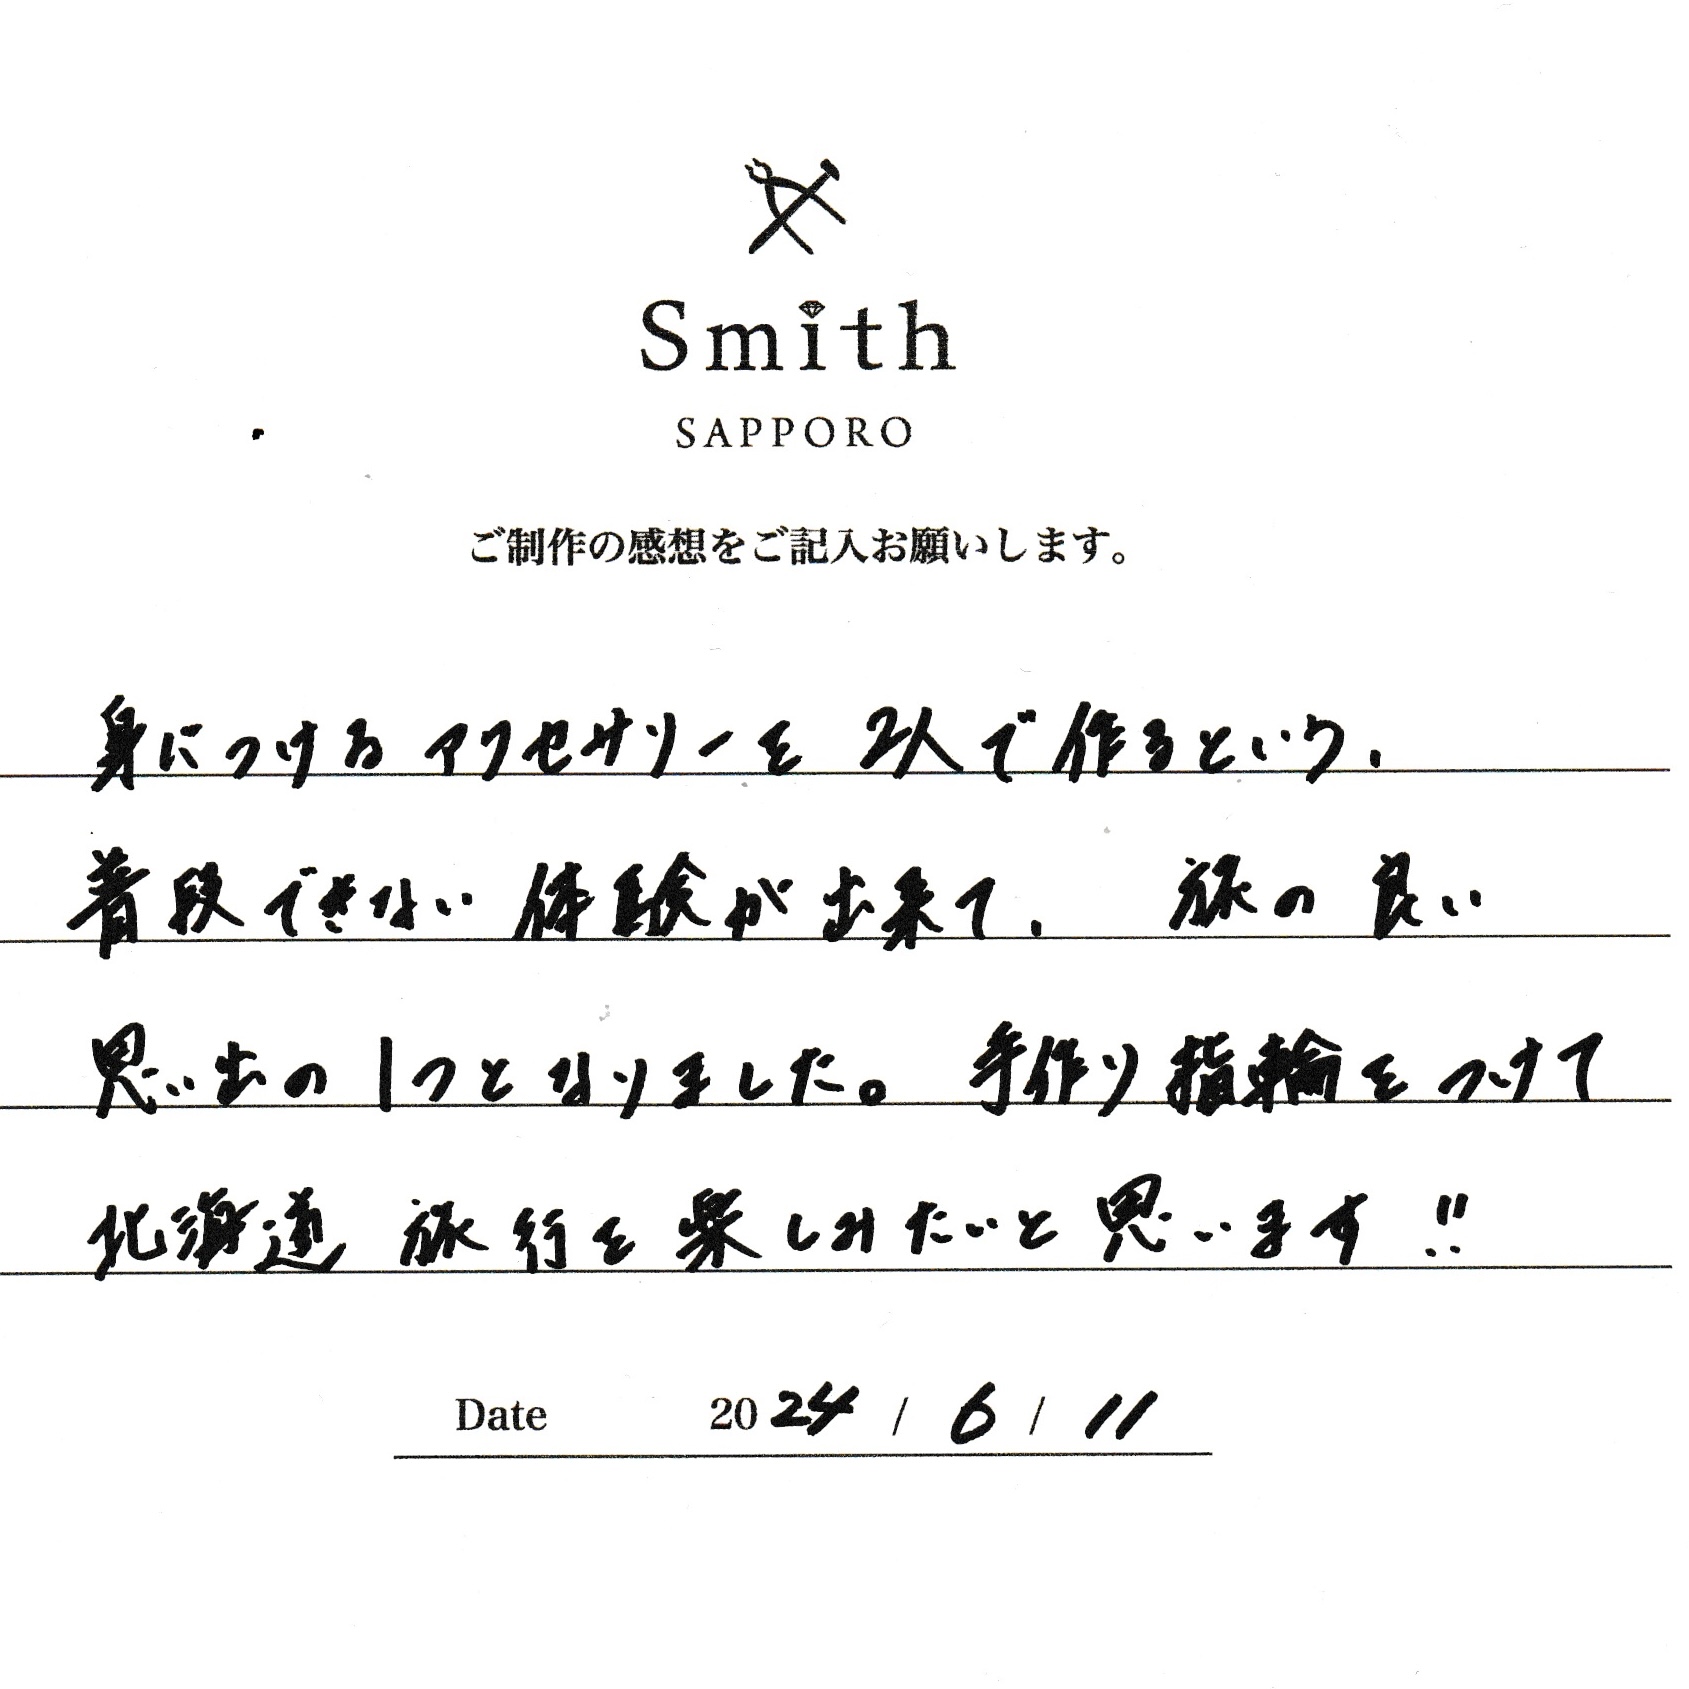 Smith
SAPPORO
ご制作の感想をご記入お願いします。
身につけるアクセサリーを2人で作るという、
普段できない体験が出来て、旅の良い
思い出の1つとなりました。手作り指輪をつけて
北海道旅行を楽しみたいと思います!!
Date 2024 / 6 / 11